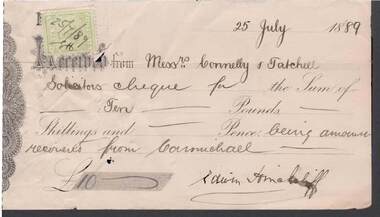 25 July 1889
25/7/89
Received from Mess.rs Connelly & Tatchell
Solicitors cheque for the Sum of
Ten Pounds
Shillings and Pence being amount
recovered from Carmichael
£10
Edwin Hinchcliff